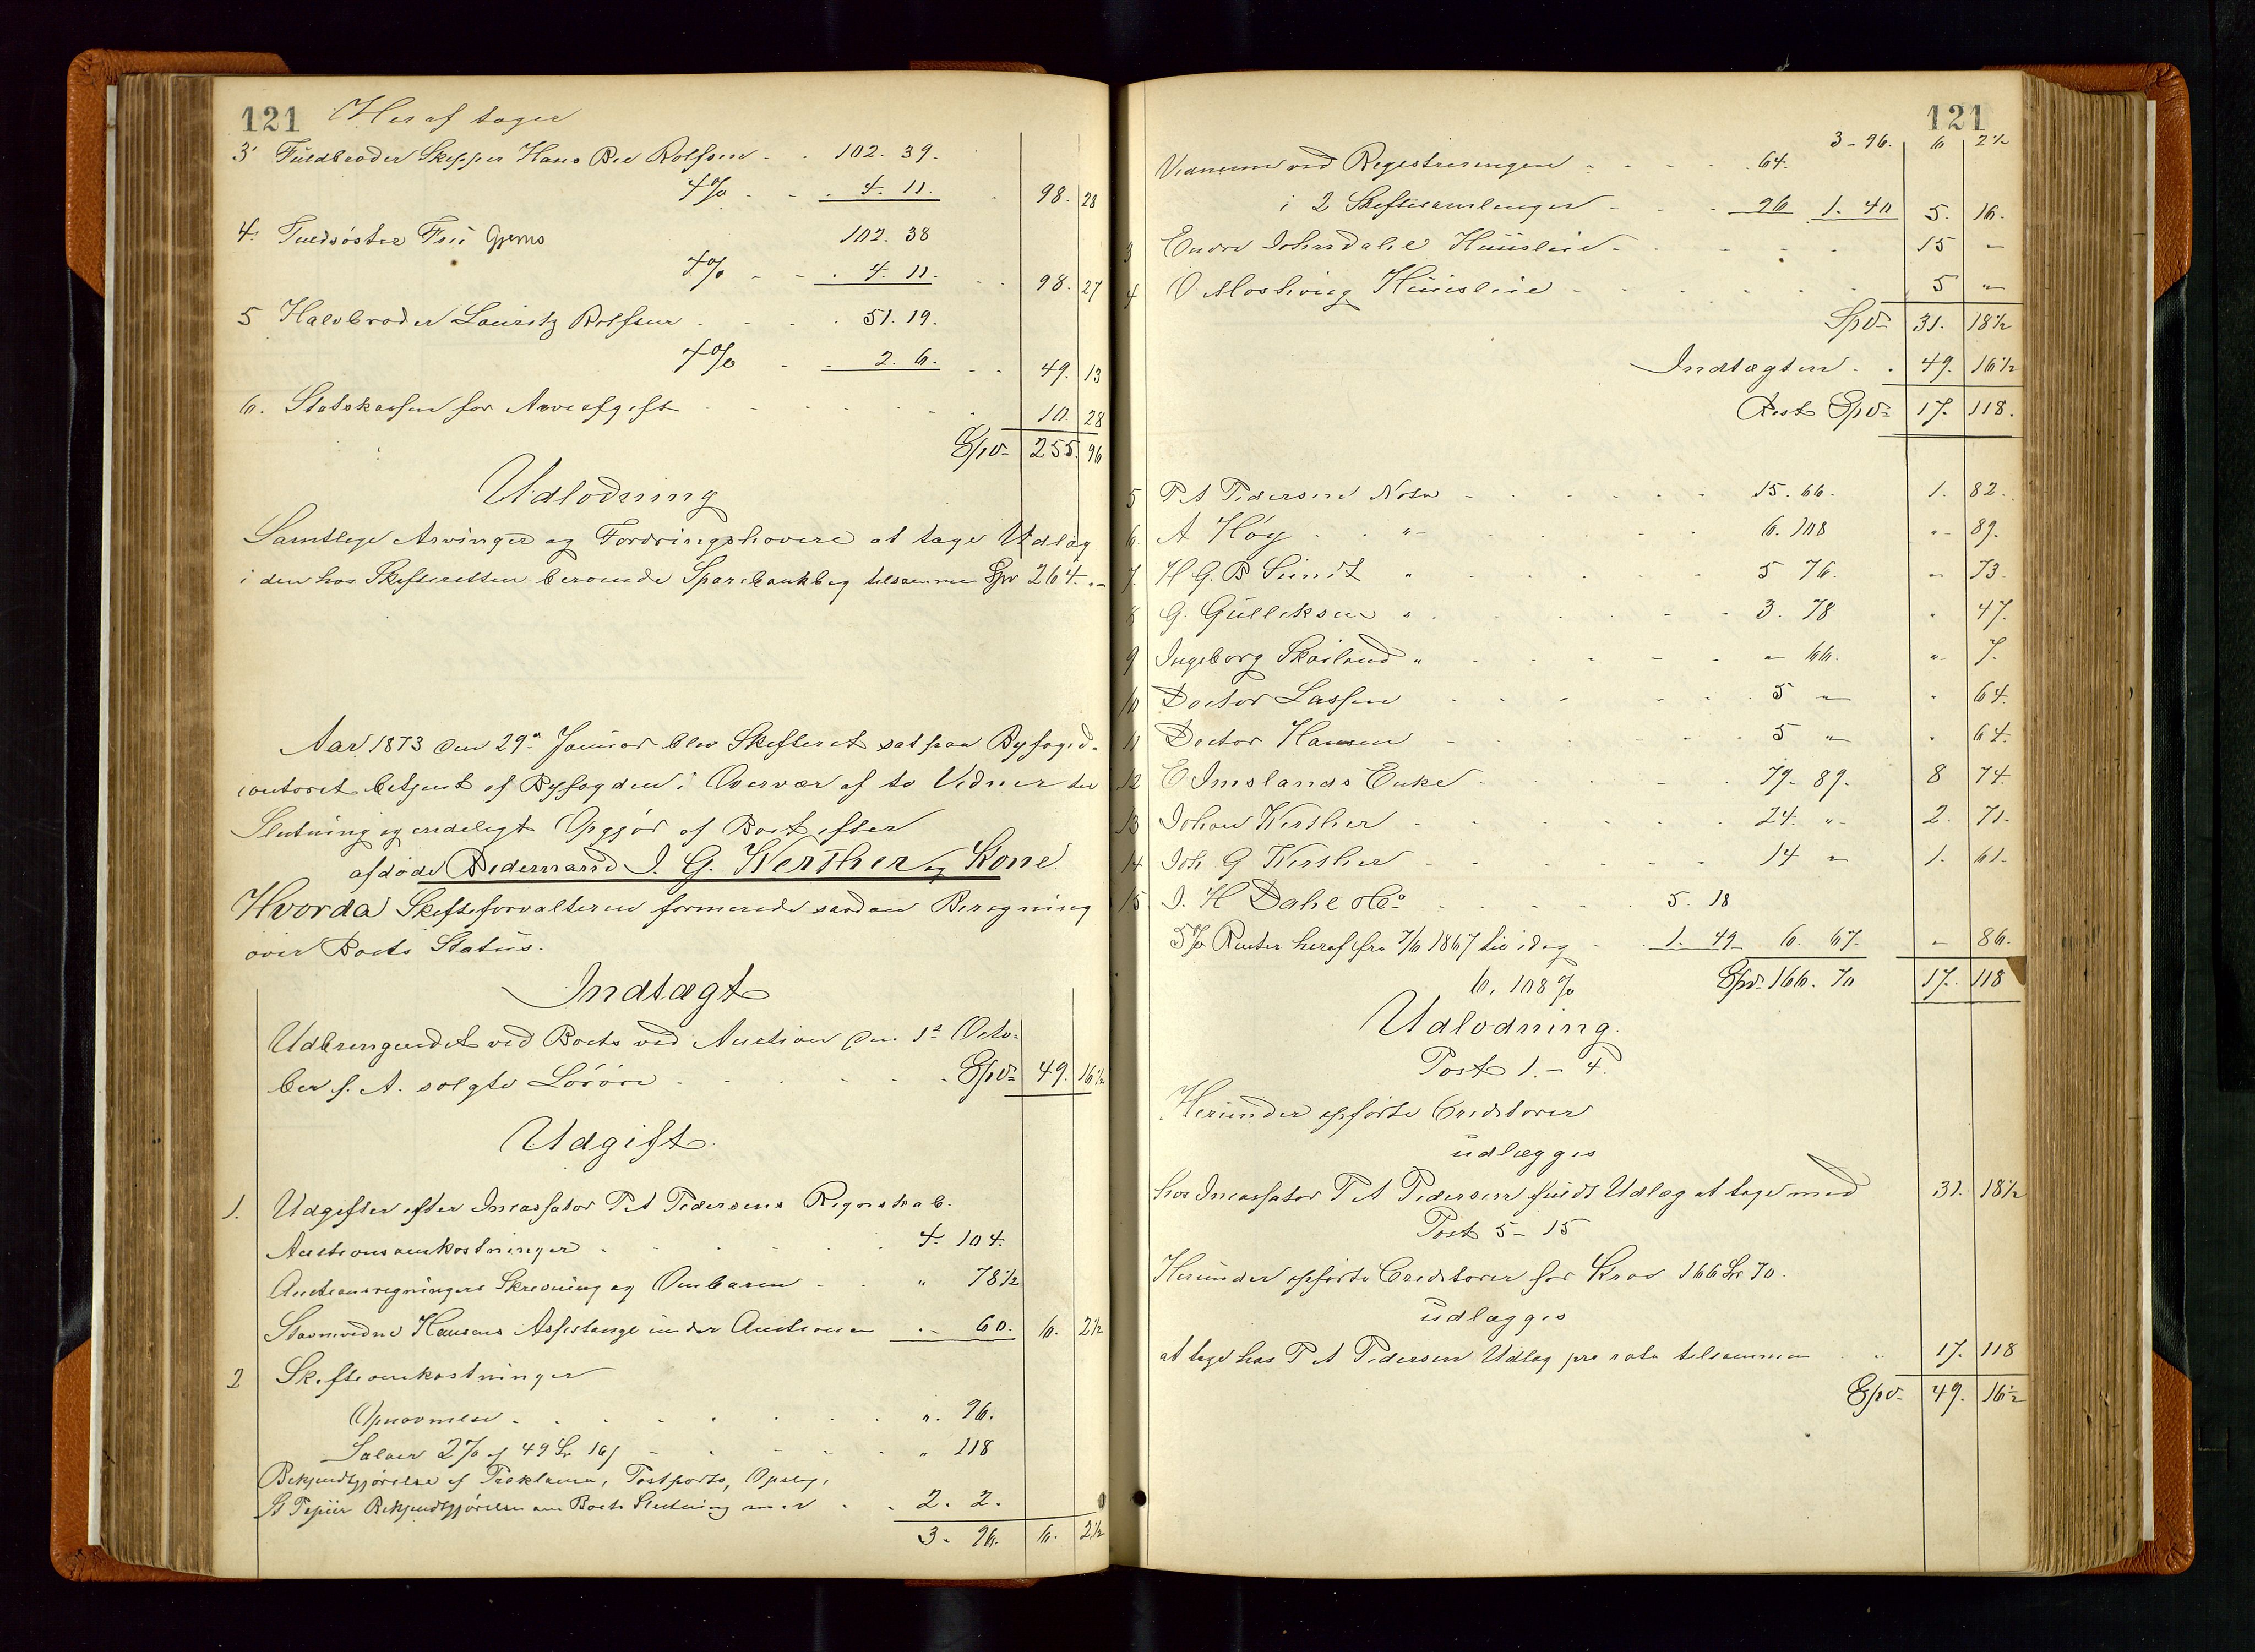 121 Heraf tager
3' Fuldbroder Skipper Hans Bie Rolfsen - . 102. 39.
4% - - . 4. 11. . 98. 28
4. Fuldsøster Fru Gjems 102. 38
4% - - . 4. 11. - . 98. 27
5 Halvbroder Lauritz Rolfsen . . . . 51. 19.
4% - . 2. 6. - . 49. 13
6. Statskassen for Arveafgift . - - . . - . 10. 28
Spd= 255. 96
Udlodning
Samtlige Arvinger og Fordringshavere at tage Udlæg
i den hos Skifteretten beroende Sparebankbog tilsammen Spd 264. „-
Aar 1873 den 29n Januar blev Skifteret sat paa Byfoged-
contoret betjent af Byfogden i Overvær af to Vidner til
Slutning og endeligt Opgjør af Boet efter
afdøde Bedemand J. G. Werther og Kone.
Hvorda Skifteforvalteren formerede saadan Beregning
over Boets Status.
Indtægt
Udbringendet ved Boets ved Auction den 1n Octo=
ber f. A. solgte Løsøre - . - . - . Spd= 49. 16½
Udgift.
1. Udgifter efter Incassator P A Pedersens Regnskab.
Auctionsomkostninger . - . . . . 4. 104.
Auctionsregningens Skrivning og Ombæren - . „ 78½
Stævnevidne Hansens Assistange under Auctionen .- 60. 6. 2½
2 Skifteomkostninger
Opnævnelse . . . . . . . . „. 96.
Salær 2% af 49 Sp 16 ſ - . - . . „ 118
Bekjendtgjørelse af Proklama, Postporto, Opslag,
St Papiir Bekjendtgjørelse om Boets Slutning m. v . . 2. 2.
3. 96. 6. 2½
121
3-96. 6 2½
Vidnerne ved Registreringen - - - . 64.
i 2 Skiftesamlinger - - . 96 1. 40 5. 16.
3 Endre Johndahl Huusleie - . - - . 15 -
4 O Mosheing Huusleie - . . . . . 5 „-
Spd= 31. 18½
Indtægten . . 49. 16½
Rest Spd= 17. 118.
5 P A Pedersen Nota - . - . . . 15. 66. 1. 82.
6. A Høy . . „- . . . - . 6. 108 „- 89.
7. H G. B Sundt „ - . - . . 5 76. „- 73.
8 G. Gulliksen „ . . . - - 3. 78 „ 47.
9 Ingeborg Skailand „ - . - - . „ 66. „- 7.
10 Doctor Lassen . - . - - . 5 „- „ 64.
11 Doctor Hansen - . . - . . 5 „- „ 64.
12 E Imslands Enke - . . - . 79- 89. 8 74.
13 Johan Werther - . - - . . 24. „- 2. 71.
14 Joh G Werther - - . - . . 14 „- 1. 61.
15 J. H Dahl & Co . - . . . 5. 18
5% Renter heraf fra 7/6 1867 til idag - . 1. 49- 6. 67. „- 86.
6, 108% Spd= 166. 70 17. 118
Udlodning.
Post 1.- 4.
Herunder opførte Creditorer
udlægges
hos Incassator P A Pedersen fuldt Udlæg at tage med 31. 18½
Post 5- 15
Herunder opførte Creditorer for Krav 166 Sp 70.
udlægges
at tage hos P A Pedersen Udlæg pro rata tilsammen . . 17. 118
Spd- 49. 16½